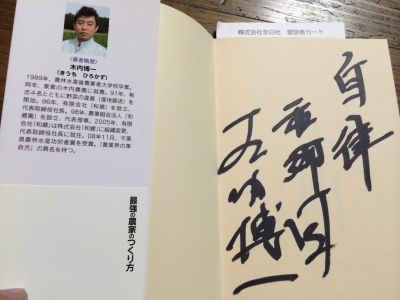 〈著者略歴〉
木内博一
(きうち ひろかず)
1989年、農林水産省農業者大学校卒業。
同年、家業の木内農園に就農。91年、有
志4名とともに野菜の産直(産地直送)を
開始。96年、有限会社「和郷」を設立、
代表取締役社長。98年、農事組合法人「和
郷園」を設立、代表理事。2005年、有限
会社「和郷」は株式会社「和郷」に組織変更、
代表取締役社長に就任。08年11月、千葉
県農林水産功労者賞を受賞。「農業界の革
命児」の異名を持つ。
最強の農家のつくり方
株式会社李白社 愛読者カード
自律
和郷園
木内博一